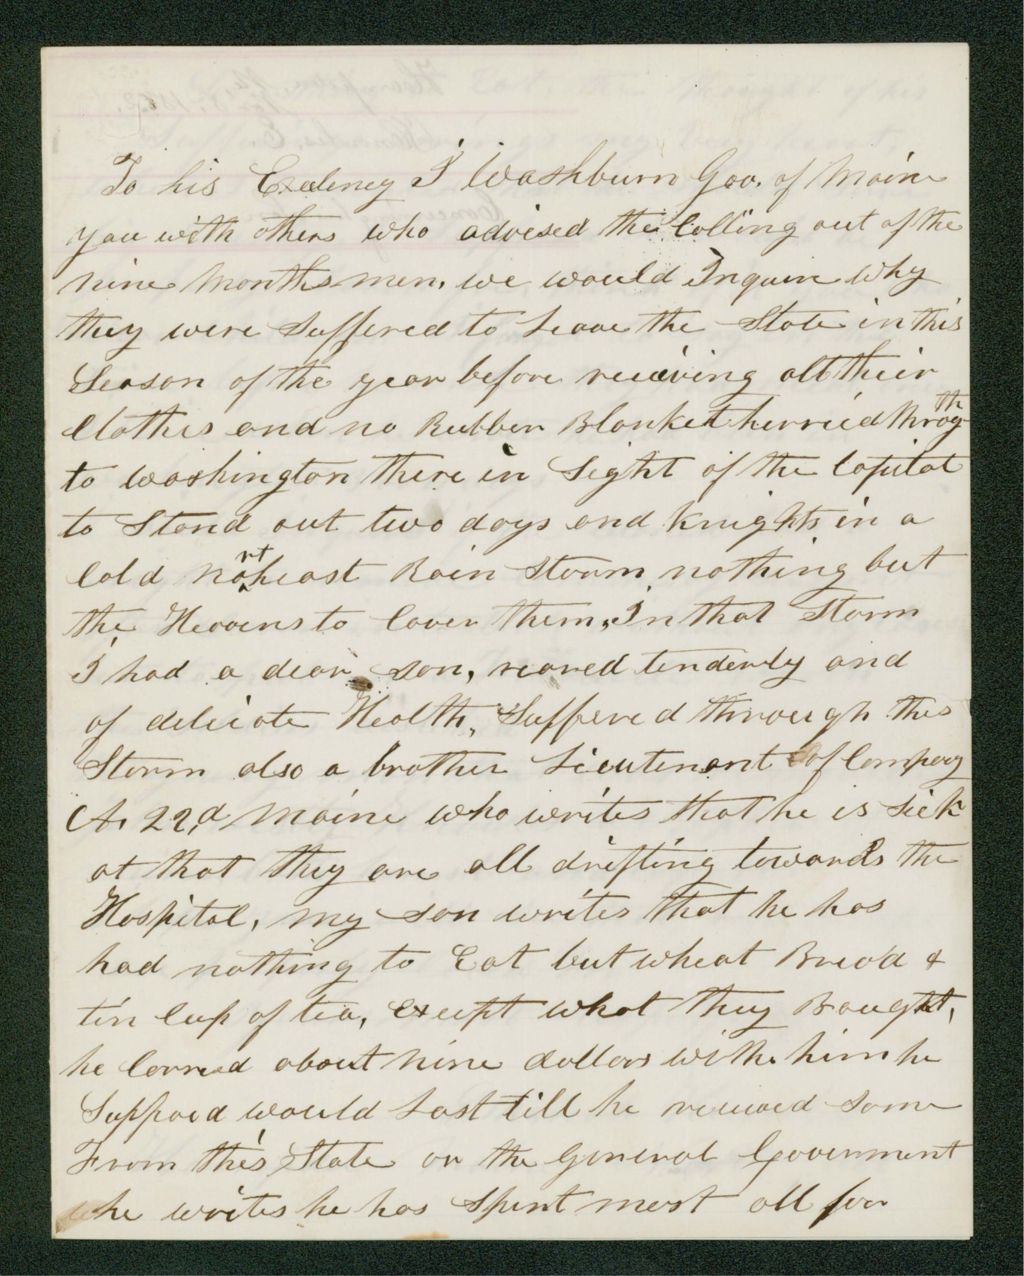 To his Exelency I Washburn Gov. of Maine
you with others who advised the Calling out of the
nine Months men. we would Inquire why
they were Suffered to Leave the State in this
Season of the year before receiving all their
Clothes and no Rubber Blanket herried throg th
to Washington there in Sight of the Capital
to Stand out two days and Knights in a
Cold northeast Rain Storm nothing but
the Hevens to Cover them, In that Storm
I had a dear son, reared tenderly and
of delicate Health, Suffered through this
Storm also a brother Lieutenant of Compay
A. 22d Maine who writes that he is Sick
at that they are all drifting towards the
Hospital, my son writes that he has
had nothing to Eat but wheat Bread &
tin Cup of tea, except what they Bought,
he Carred about nine dollars with him he
Supposd would Last till he received some
From this State or the General Goverment
he writes he has Spent most all for